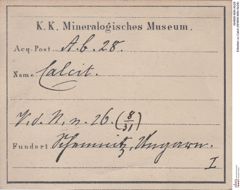 K. K. Mineralogisches Museum.
Acq.-Post A. b. 28.
Name Calcit.
V. d. N. n. 26. (8/31)
Fundort Schemnitz, Ungarn.
I